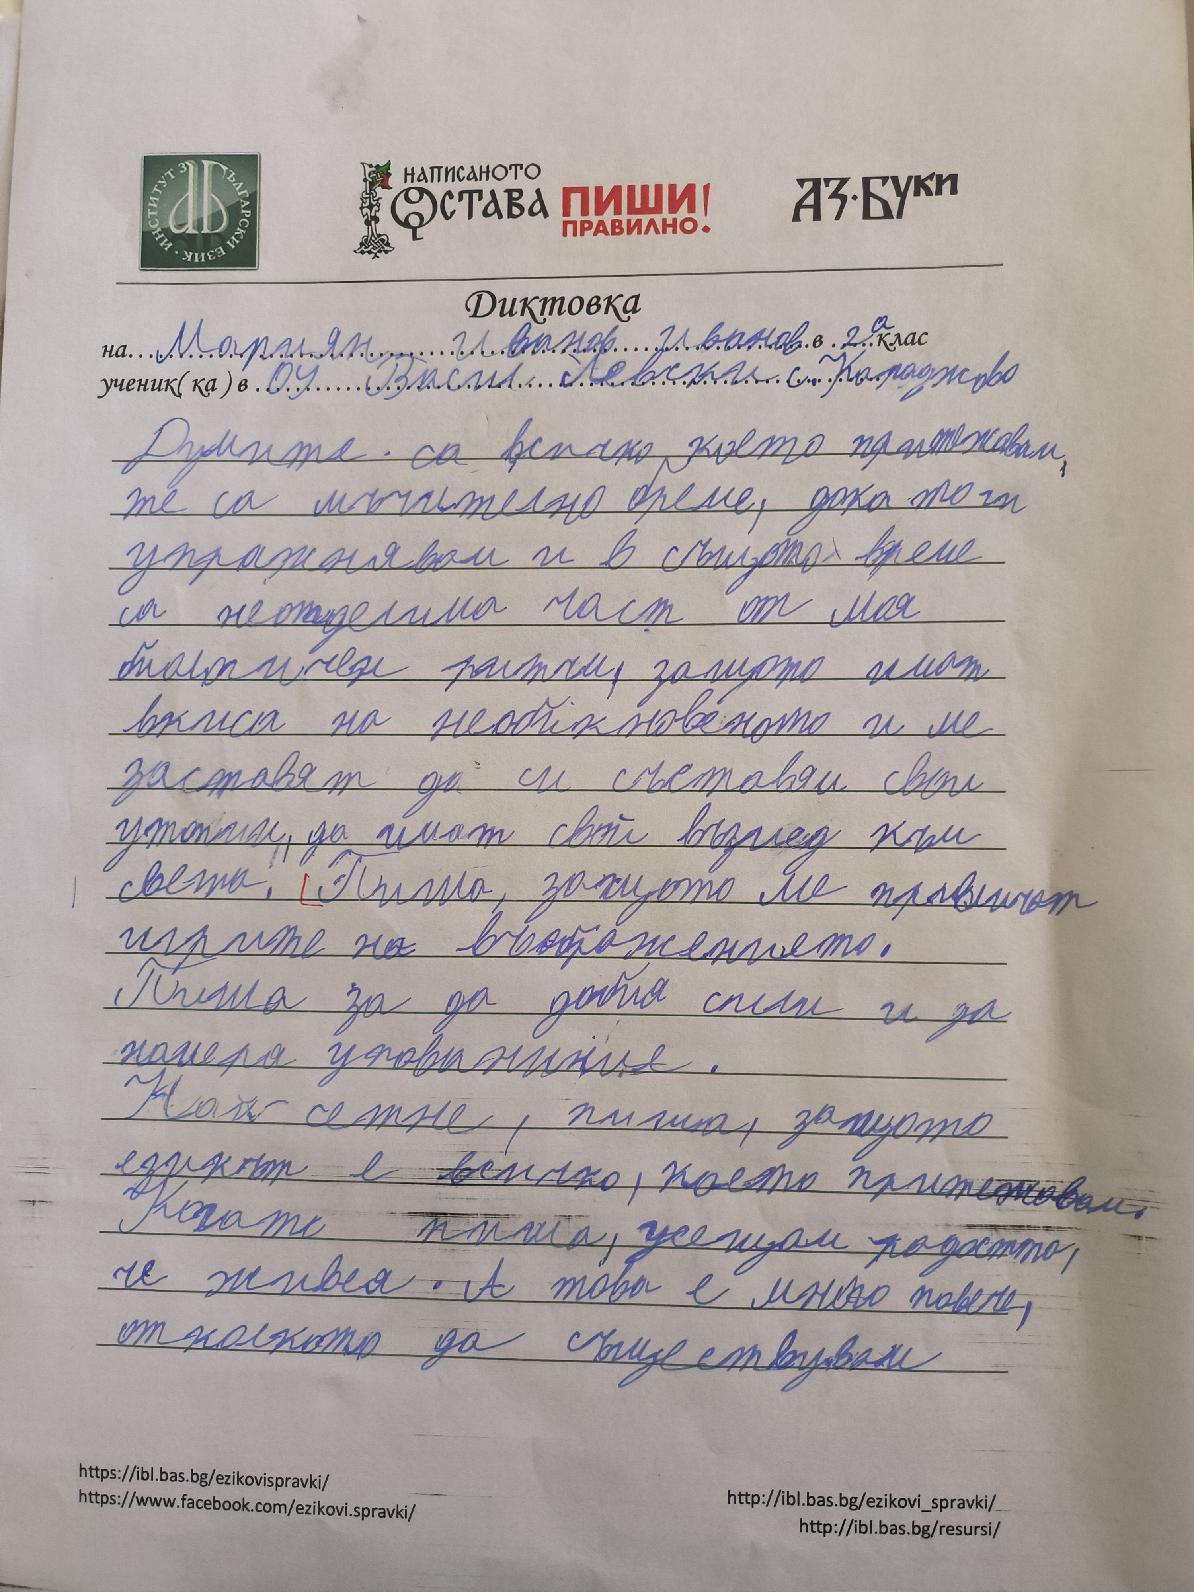 ИНСТИТУТ ЗА БЪЛГАРСКИ ЕЗИК
НАПИСАНОТО
ОСТАВА ПИШИ
ПРАВИЛНО!
АЗ·БУКИ
Диктовка
на Мариян Иванов Иванов в 2 а клас
ученик(ка) в ОУ Васил Левски с. Караджово
Думите са всичко което притежавам,
те са мъчително бреме, дока то ги
упражнявам и в същото време
са неотделима част от моя
биологичен ритъм, защото имат
вкиса на необикновеното и ме
заставят да си съставям свои
утопии, да имат свой възглед към
света. Пиша, защото ме привличат
игрите на въображенията.
Пиша за да добия сили и да
намеря упованиния.
Най сетне, пиша, защото
езикът е всичко, което притежавам.
Когато пиша, усещам радостта,
че живея. А това е много повече,
отколкото да съществувам
https://ibl.bas.bg/ezikovispravki/
https://www.facebook.com/ezikovi.spravki/
http://ibl.bas.bg/ezikovi_spravki/
http://ibl.bas.bg/resursi/